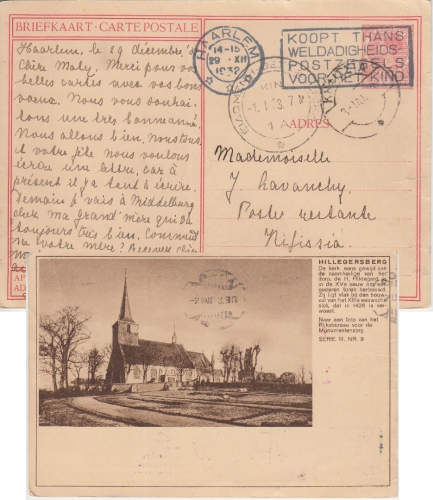 BRIEFKAART - CARTE POSTALE
Haarlem, le 29 décembre
Chère Maby. Merci pour vos
belles cartes avec vos bons
voeux. Nous vous souhai-
tons une très bonne année.
Nous allons bien, nous tous.
à présent il y a tant à écrire.
Demain je vais à Middelburg
chez ma grand' mère qui va
toujours très bien. Comment
va votre mère?
HAARLEM
14-15
29 XII
1932
KOOPT THANS
WELDADIGHEIDS-
POSTZEGELS
VOOR HET KIND
ADRES
Mademoiselle
J Lavanchy
Poste restante
Kifissia
HILLEGERSBERG
De kerk, eens gewijd aan
de naamheilige van het
dorp, de H. Hildegard, is
in de XVe eeuw ong. een
ouderen toren herbouwd.
Zij ligt vlak bij den bouw-
val van het XIIIe eeuwsche
slot, dat in 1426 is ver-
woest.
Naar een foto van het
Rijksbureau voor de
Monumentenzorg.
SERIE III, NR. 9